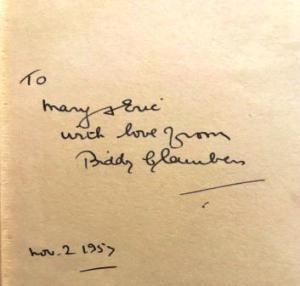 To
Mary & Eric
with love from
Biddy Chambers
Nov. 2 1957